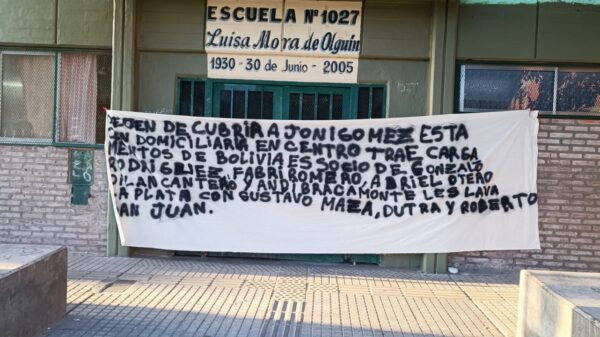 ESCUELA Nº 1027
Luisa Mora de Olguin
1930 - 30 de Junio - 2005
DEJEN DE CUBRIR A JONI GOMEZ ESTA
CON DOMICILIARIA EN CENTRO TRAE CARGA
MENTOS DE BOLIVIA ES SOCIO DE GONZALO
RODRIGUEZ, FABRI ROMERO, ABRIEL OTERO
DILAN CANTERO Y ANDI BRACAMONTE LES LAVA
LA PLATA CON GUSTAVO MAZA, DUTRA Y ROBERTO
SAN JUAN.